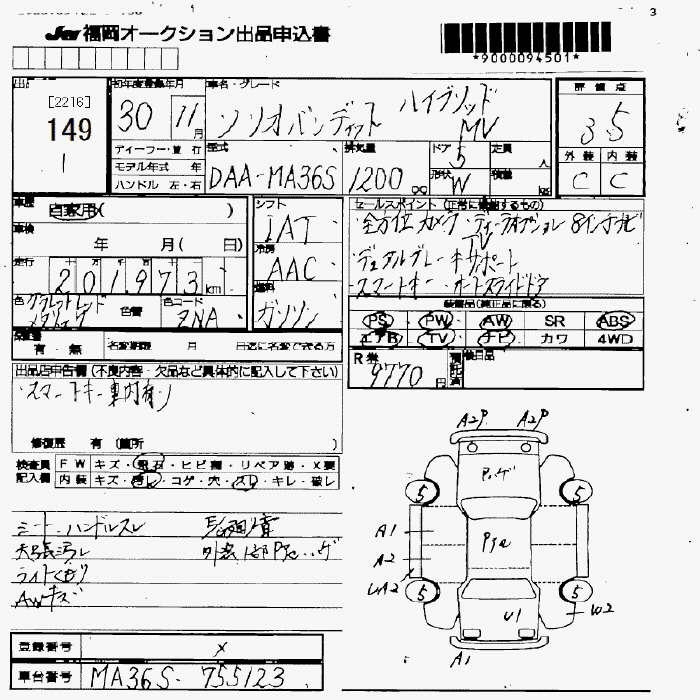 3
JU 福岡オークション出品申込書
*9000094501*
[2216]
149
1
初年度登録年月
30 11月
車名・グレード
ソリオバンディット ハイブリッド
MV
評価点
3.5
外装 内装
C C
ディーラー・並行
モデル年式 年
ハンドル 左・右
型式
DAA-MA36S
排気量
1200 cc
ドア
5
形状
W
定員
人
積載
kg
車歴
自家用( )
車検
年 月( 日)
走行
十 万 千 百
201973km
シフト
IAT
冷房
AAC
燃料
ガソリン
セールスポイント(正常に機能するもの)
全方位カメラ・ディーラオプション 8インチナビ
TV
・デュアルブレーキサポート
・スマートキー・オートスライドドア
色
メタリック
色替
色コード
ZNA
装備品(純正品に限る)
PS PW AW SR ABS
エアB TV ナビ カワ 4WD
有・無 名変期限 月 日迄に名変できる方
R券
9770円
預託済
後日品
出品店申告欄(不良内容・欠品など具体的に記入して下さい)
・スマートキー車内有り
修復歴 有(箇所 )
検査員記入欄
FW キズ・飛石・ヒビ割・リペア跡・X要
内装 キズ・汚レ・コゲ・穴・スレ・キレ・破レ
シート・ハンドルスレ
天張汚レ 外装1部Pje・ゲ
ライトくもり
AWキズ
A2P A2P
P.ゲ
5 5
A1
Pje
A2
UA2
5 5
U1
W2
A1
登録番号 ×
車台番号 MA36S-755123